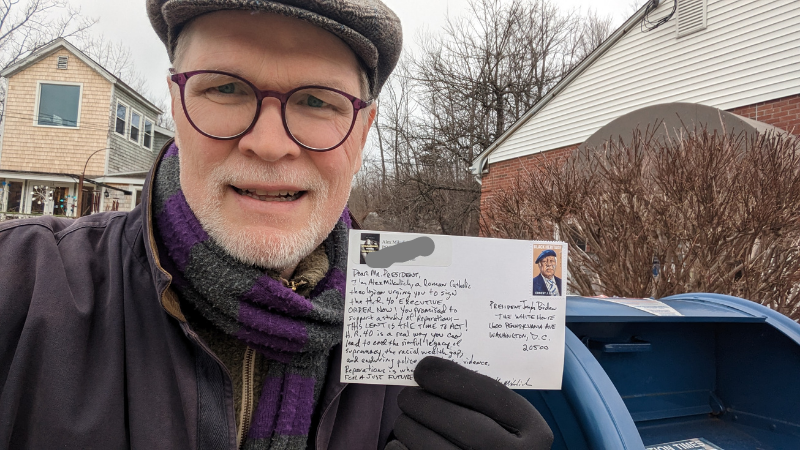 Alex Mik
BLACK HERITAGE
DEAR MR. PRESIDENT,
I'm Alex Mikulich, a Roman Catholic
theologian urging you to sign
the H.R. 40 EXECUTIVE
ORDER NOW! YOU PROMISED TO
support a study of Reparations—
THIS LENT IS THE TIME TO ACT!
H.R. 40 is a real way you can
lead to end the sinful legacy of
supremacy, the racial wealth gap,
and enduring police violence.
Reparations is
FOR A JUST FUTURE
PRESIDENT Joseph Biden
THE WHITE HOUSE
1600 PENNSYLVANIA AVE
WASHINGTON, D.C.
20500